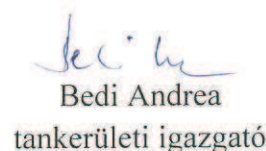 Bedi Andrea
tankerületi igazgató